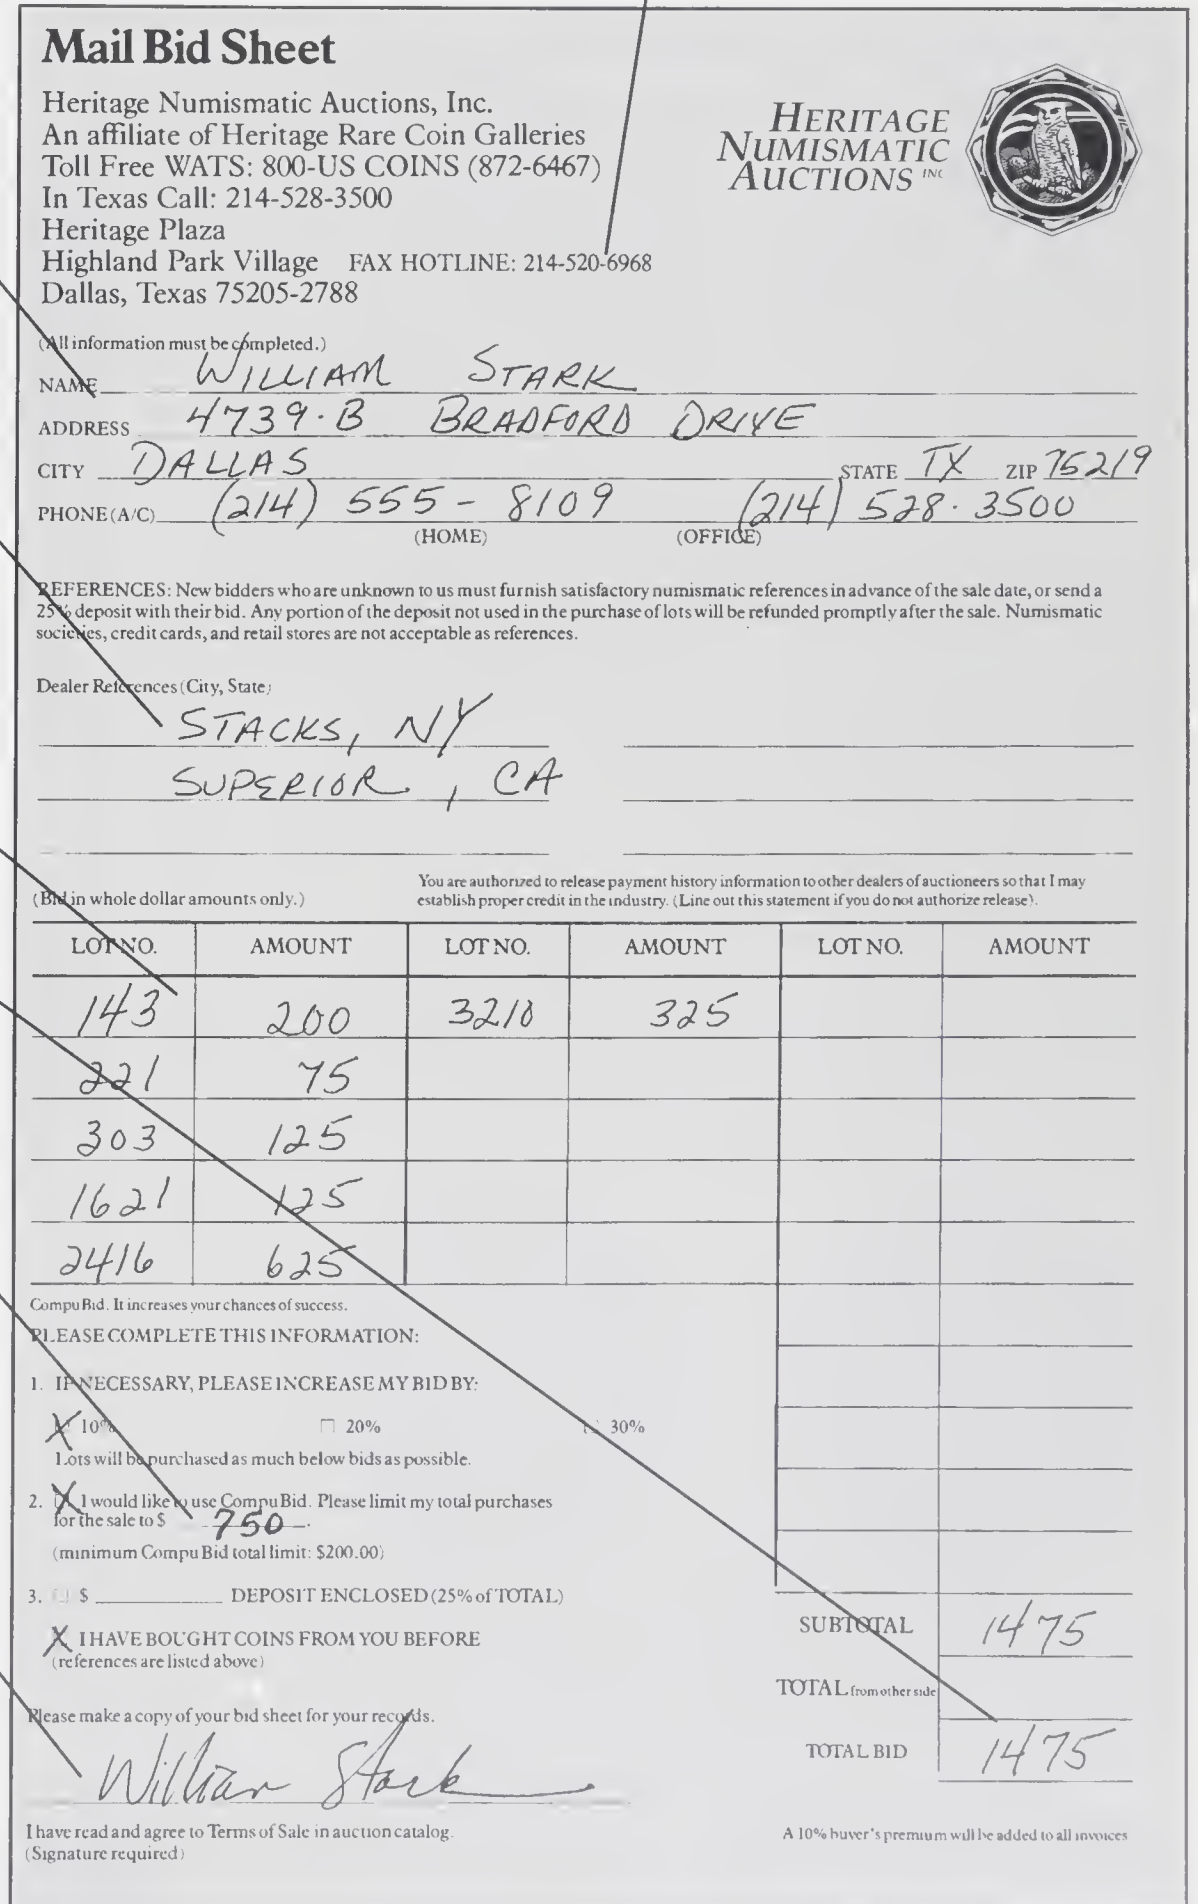 Mail Bid Sheet
Heritage Numismatic Auctions, Inc.
An affiliate of Heritage Rare Coin Galleries
Toll Free WATS: 800-US COINS (872-6467)
In Texas Call: 214-528-3500
Heritage Plaza
Highland Park Village FAX HOTLINE: 214-520-6968
Dallas, Texas 75205-2788
HERITAGE
NUMISMATIC
AUCTIONS INC
(All information must be completed.)
NAME WILLIAM STARK
ADDRESS 4739-B BRADFORD DRIVE
CITY DALLAS STATE TX ZIP 75219
PHONE (A/C) (214) 555-8109 (214) 528-3500
(HOME) (OFFICE)
REFERENCES: New bidders who are unknown to us must furnish satisfactory numismatic references in advance of the sale date, or send a
25% deposit with their bid. Any portion of the deposit not used in the purchase of lots will be refunded promptly after the sale. Numismatic
societies, credit cards, and retail stores are not acceptable as references.
Dealer References (City, State)
STACKS, NY
SUPERIOR, CA
You are authorized to release payment history information to other dealers of auctioneers so that I may
(Bid in whole dollar amounts only.) establish proper credit in the industry. (Line out this statement if you do not authorize release).
LOT NO. AMOUNT LOT NO. AMOUNT LOT NO. AMOUNT
143 200 3210 325
221 75
303 125
1621 125
2416 625
CompuBid. It increases your chances of success.
PLEASE COMPLETE THIS INFORMATION:
1. IF NECESSARY, PLEASE INCREASE MY BID BY:
X 10% 20% 30%
Lots will be purchased as much below bids as possible.
2. X I would like to use CompuBid. Please limit my total purchases
for the sale to $ 750.
(minimum CompuBid total limit: $200.00)
3. $ DEPOSIT ENCLOSED (25% of TOTAL)
X I HAVE BOUGHT COINS FROM YOU BEFORE
(references are listed above)
SUBTOTAL 1475
TOTAL from other side
TOTAL BID 1475
Please make a copy of your bid sheet for your records.
William Stark
I have read and agree to Terms of Sale in auction catalog.
(Signature required)
A 10% buyer's premium will be added to all invoices